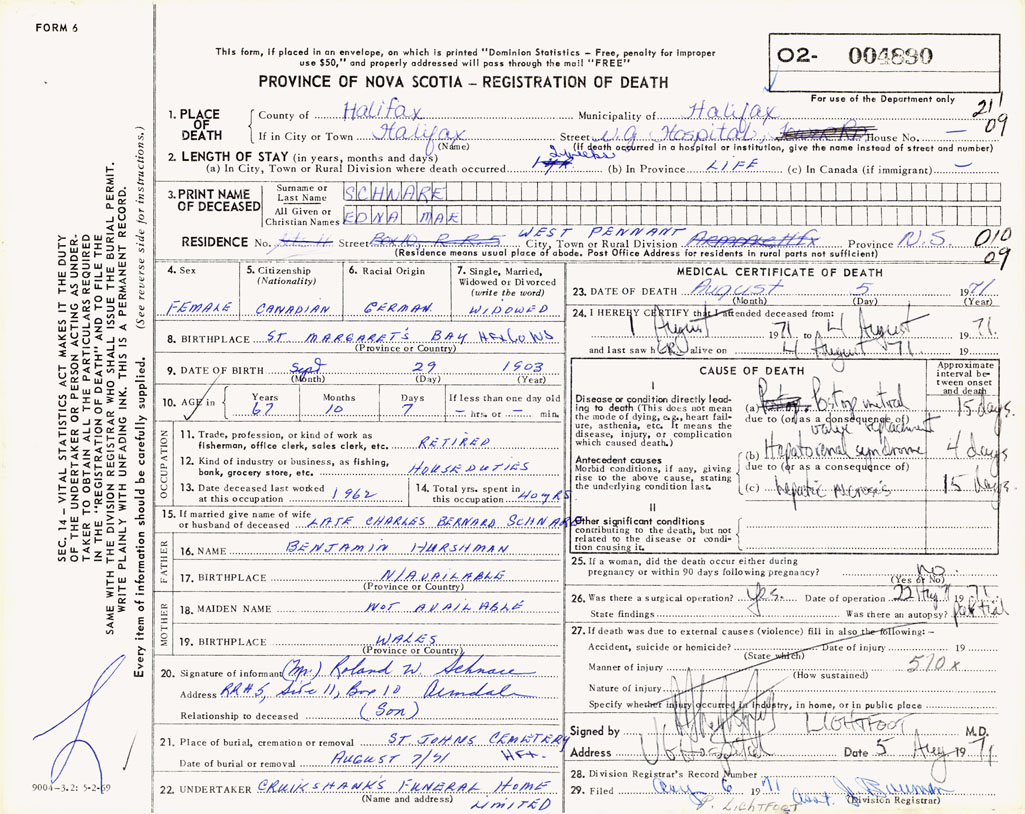 FORM 6
This form, if placed in an envelope, on which is printed "Dominion Statistics – Free, penalty for improper
use $50," and properly addressed will pass through the mail "FREE"
PROVINCE OF NOVA SCOTIA – REGISTRATION OF DEATH
02- 004890
For use of the Department only
21
09
1. PLACE OF DEATH
County of Halifax Municipality of Halifax
If in City or Town Halifax Street V.G. Hospital, House No. –
(Name) (If death occurred in a hospital or institution, give the name instead of street and number)
2. LENGTH OF STAY (in years, months and days)
(a) In City, Town or Rural Division where death occurred 2 weeks (b) In Province LIFE (c) In Canada (if immigrant) –
3. PRINT NAME OF DECEASED
Surname or Last Name SCHNARE
All Given or Christian Names EDNA MAE
RESIDENCE No. Street WEST PENNANT City, Town or Rural Division Province N.S.
(Residence means usual place of abode. Post Office Address for residents in rural parts not sufficient)
010
09
4. Sex FEMALE
5. Citizenship (Nationality) CANADIAN
6. Racial Origin GERMAN
7. Single, Married, Widowed or Divorced (write the word) WIDOWED
8. BIRTHPLACE ST MARGARET'S BAY HFX CO NS
(Province or Country)
9. DATE OF BIRTH Sept 29 1903
(Month) (Day) (Year)
10. AGE in Years 67 Months 10 Days 7 If less than one day old – hrs. or – min.
OCCUPATION
11. Trade, profession, or kind of work as
fisherman, office clerk, sales clerk, etc. RETIRED
12. Kind of industry or business, as fishing,
bank, grocery store, etc. HOUSE DUTIES
13. Date deceased last worked
at this occupation 1962
14. Total yrs. spent in
this occupation 40 YRS
15. If married give name of wife
or husband of deceased LATE CHARLES BERNARD SCHNARE
FATHER
16. NAME BENJAMIN HURSHMAN
17. BIRTHPLACE N/AVAILABLE
(Province or Country)
MOTHER
18. MAIDEN NAME NOT AVAILABLE
19. BIRTHPLACE WALES
(Province or Country)
20. Signature of informant (Mr.) Roland W. Schnare
Address RR#5, Site 11, Box 10 Armdale
Relationship to deceased (Son)
21. Place of burial, cremation or removal ST JOHNS CEMETERY
HFX.
Date of burial or removal AUGUST 7/71
22. UNDERTAKER CRUIKSHANK'S FUNERAL HOME
(Name and address) LIMITED
MEDICAL CERTIFICATE OF DEATH
23. DATE OF DEATH August 5 1971
(Month) (Day) (Year)
24. I HEREBY CERTIFY that I attended deceased from:
1 August 1971 to 4 August 1971.
and last saw her alive on 4 August 71 19
CAUSE OF DEATH
Approximate interval between onset and death
I
Disease or condition directly leading
to death (This does not mean
the mode of dying, e.g., heart failure,
asthenia, etc. It means the
disease, injury, or complication
which caused death.)
(a) Postop mitral 15 days.
due to (or as a consequence of)
valve replacement
Antecedent causes
Morbid conditions, if any, giving
rise to the above cause, stating
the underlying condition last.
(b) Hepatorenal syndrome 4 days
due to (or as a consequence of)
(c) hepatic necrosis 15 days.
II
Other significant conditions
contributing to the death, but not
related to the disease or condition
causing it.
25. If a woman, did the death occur either during
pregnancy or within 90 days following pregnancy? no.
(Yes or No)
26. Was there a surgical operation? yes. Date of operation 1971
State findings Was there an autopsy? partial
27. If death was due to external causes (violence) fill in also the following: –
Accident, suicide or homicide? Date of injury 19
(State which)
Manner of injury 570 x
(How sustained)
Nature of injury
Specify whether injury occurred in industry, in home, or in public place
Signed by LIGHTFOOT M.D.
Address V G Hospital Date 5 Aug 1971
28. Division Registrar's Record Number
29. Filed Aug 6 1971
(Division Registrar)
P. LIGHTFOOT
SEC. 14 – VITAL STATISTICS ACT MAKES IT THE DUTY
OF THE UNDERTAKER OR PERSON ACTING AS UNDERTAKER
TO OBTAIN ALL THE PARTICULARS REQUIRED
IN THE "REGISTRATION OF DEATH" AND TO FILE THE
SAME WITH THE DIVISION REGISTRAR WHO SHALL ISSUE THE BURIAL PERMIT.
WRITE PLAINLY WITH UNFADING INK. THIS IS A PERMANENT RECORD.
Every item of information should be carefully supplied. (See reverse side for instructions.)
9004-3.2: 5-2-69